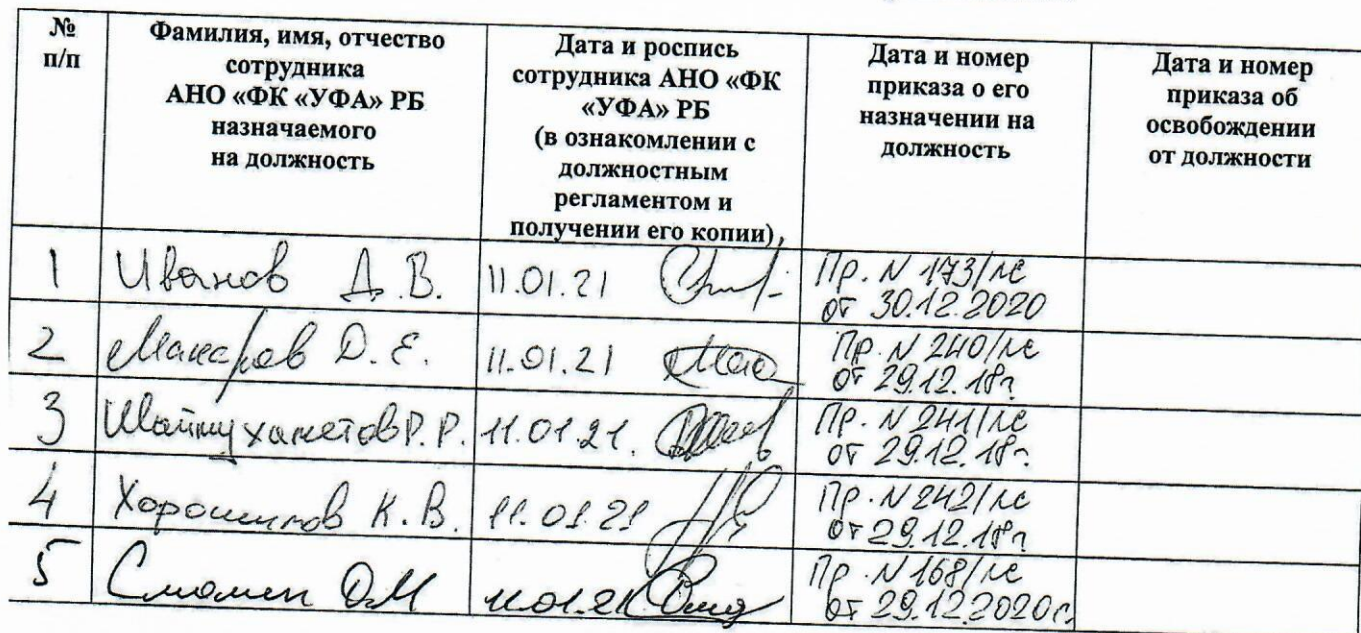 №
п/п
Фамилия, имя, отчество
сотрудника
АНО «ФК «УФА» РБ
назначаемого
на должность
Дата и роспись
сотрудника АНО «ФК
«УФА» РБ
(в ознакомлении с
должностным
регламентом и
получении его копии),
Дата и номер
приказа о его
назначении на
должность
Дата и номер
приказа об
освобождении
от должности
1 Иванов Д.В. 11.01.21
Пр. N 173/лс
от 30.12.2020
2 Макаров D. Е. 11.01.21
Пр. N 240/лс
от 29.12.18г
3 Шаймухаметов Р.Р. 11.01.21.
Пр. N 241/лс
от 29.12.18г.
4 Хорошилов К.В. 11.01.21
Пр. N 242/лс
от 29.12.18г
5 11.01.21
Пр. N 168/лс
от 29.12.2020г